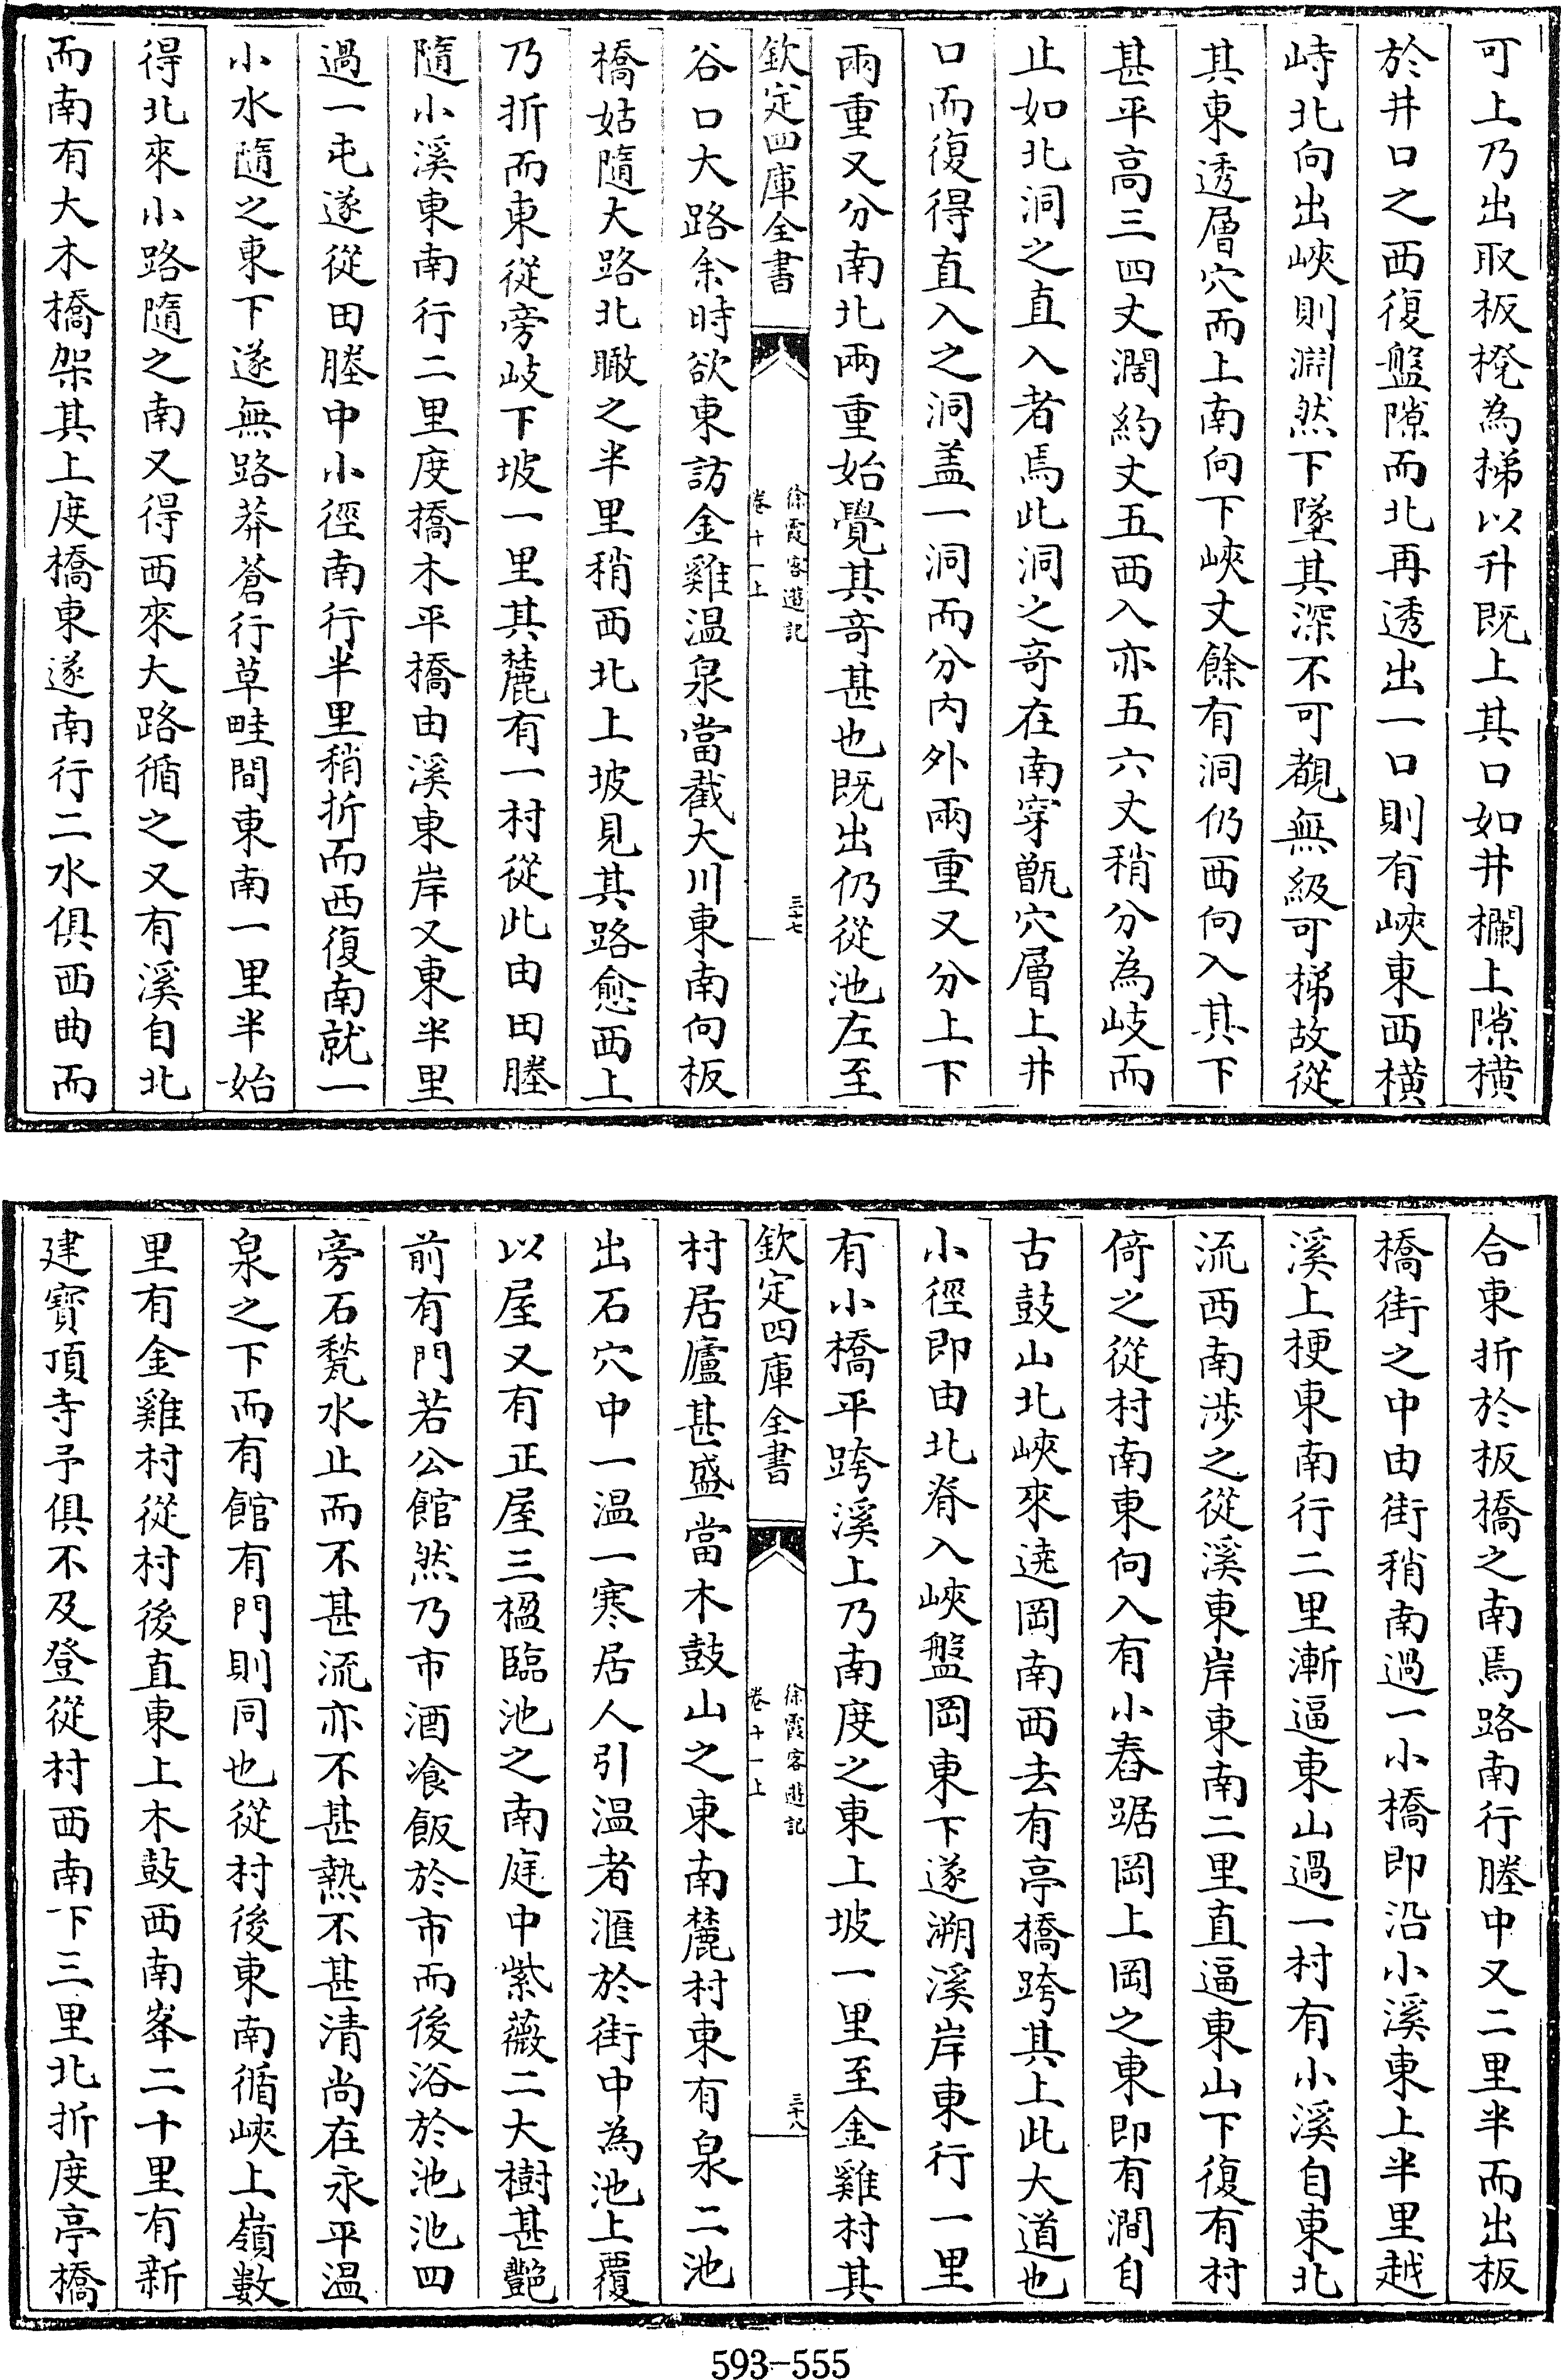 可上乃出取板櫈為梯以升既上其口如井欄上隙横
於井口之西復盤隙而北再透出一口則有峽東西横
峙北向出峽則淵然下墜其深不可覩無級可梯故從
其東透層穴而上南向下峽丈餘有洞仍西向入其下
甚平高三四丈濶約丈五西入亦五六丈稍分為岐而
止如北洞之直入者焉此洞之竒在南穿甑穴層上井
口而復得直入之洞盖一洞而分内外兩重又分上下
兩重又分南北兩重始覺其竒甚也既出仍從池左至
欽定四庫全書
徐霞客遊記
卷十一上
三十七
谷口大路余時欲東訪金雞温泉當截大川東南向板
橋姑隨大路北瞰之半里稍西北上坡見其路愈西上
乃折而東從旁岐下坡一里其麓有一村從此由田塍
隨小溪東南行二里度橋木平橋由溪東岸又東半里
過一屯遂從田塍中小徑南行半里稍折而西復南就一
小水隨之東下遂無路莽蒼行草畦間東南一里半始
得北來小路隨之南又得西來大路循之又有溪自北
而南有大木橋架其上度橋東遂南行二水俱西曲而
合東折於板橋之南焉路南行塍中又二里半而出板
橋街之中由街稍南過一小橋即沿小溪東上半里越
溪上梗東南行二里漸逼東山過一村有小溪自東北
流西南渉之從溪東岸東南二里直逼東山下復有村
倚之從村南東向入有小舂踞岡上岡之東即有澗自
古鼓山北峽來遶岡南西去有亭橋跨其上此大道也
小徑即由北脊入峽盤岡東下遂溯溪岸東行一里
有小橋平跨溪上乃南度之東上坡一里至金雞村其
欽定四庫全書
徐霞客遊記
卷十一上
三十八
村居廬甚盛當木鼓山之東南麓村東有泉二池
出石穴中一温一寒居人引温者滙於街中為池上覆
以屋又有正屋三楹臨池之南庭中紫薇二大樹甚艷
前有門若公館然乃市酒飡飯於市而後浴於池池四
旁石甃水止而不甚流亦不甚熱不甚清尚在永平温
泉之下而有館有門則同也從村後東南循峽上嶺數
里有金雞村從村後直東上木鼓西南峯二十里有新
建寶頂寺予俱不及登從村西南下三里北折度亭橋
593-555